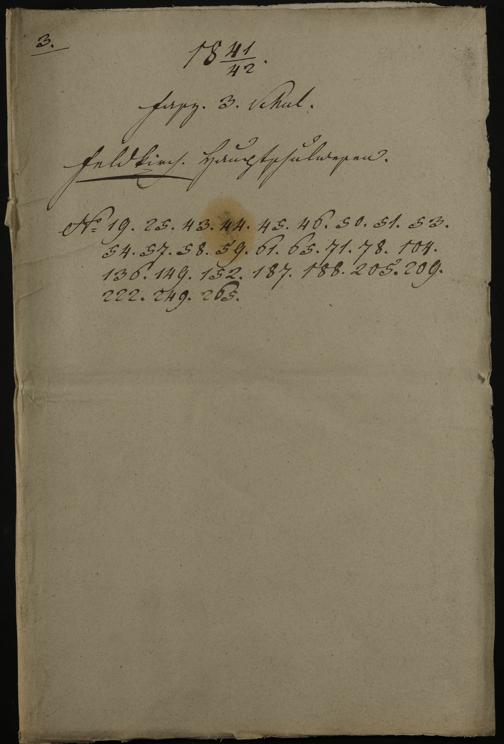 3.
18 41/42.
Fasz. 3. Schul.
Feldkirch. Hauptschulwesen.
No 19. 25. 43. 44. 45. 46. 50. 51. 53.
54. 57. 58. 59. 61. 65. 71. 78. 104.
136. 149. 152. 187. 188. 205. 209.
222. 249. 265.